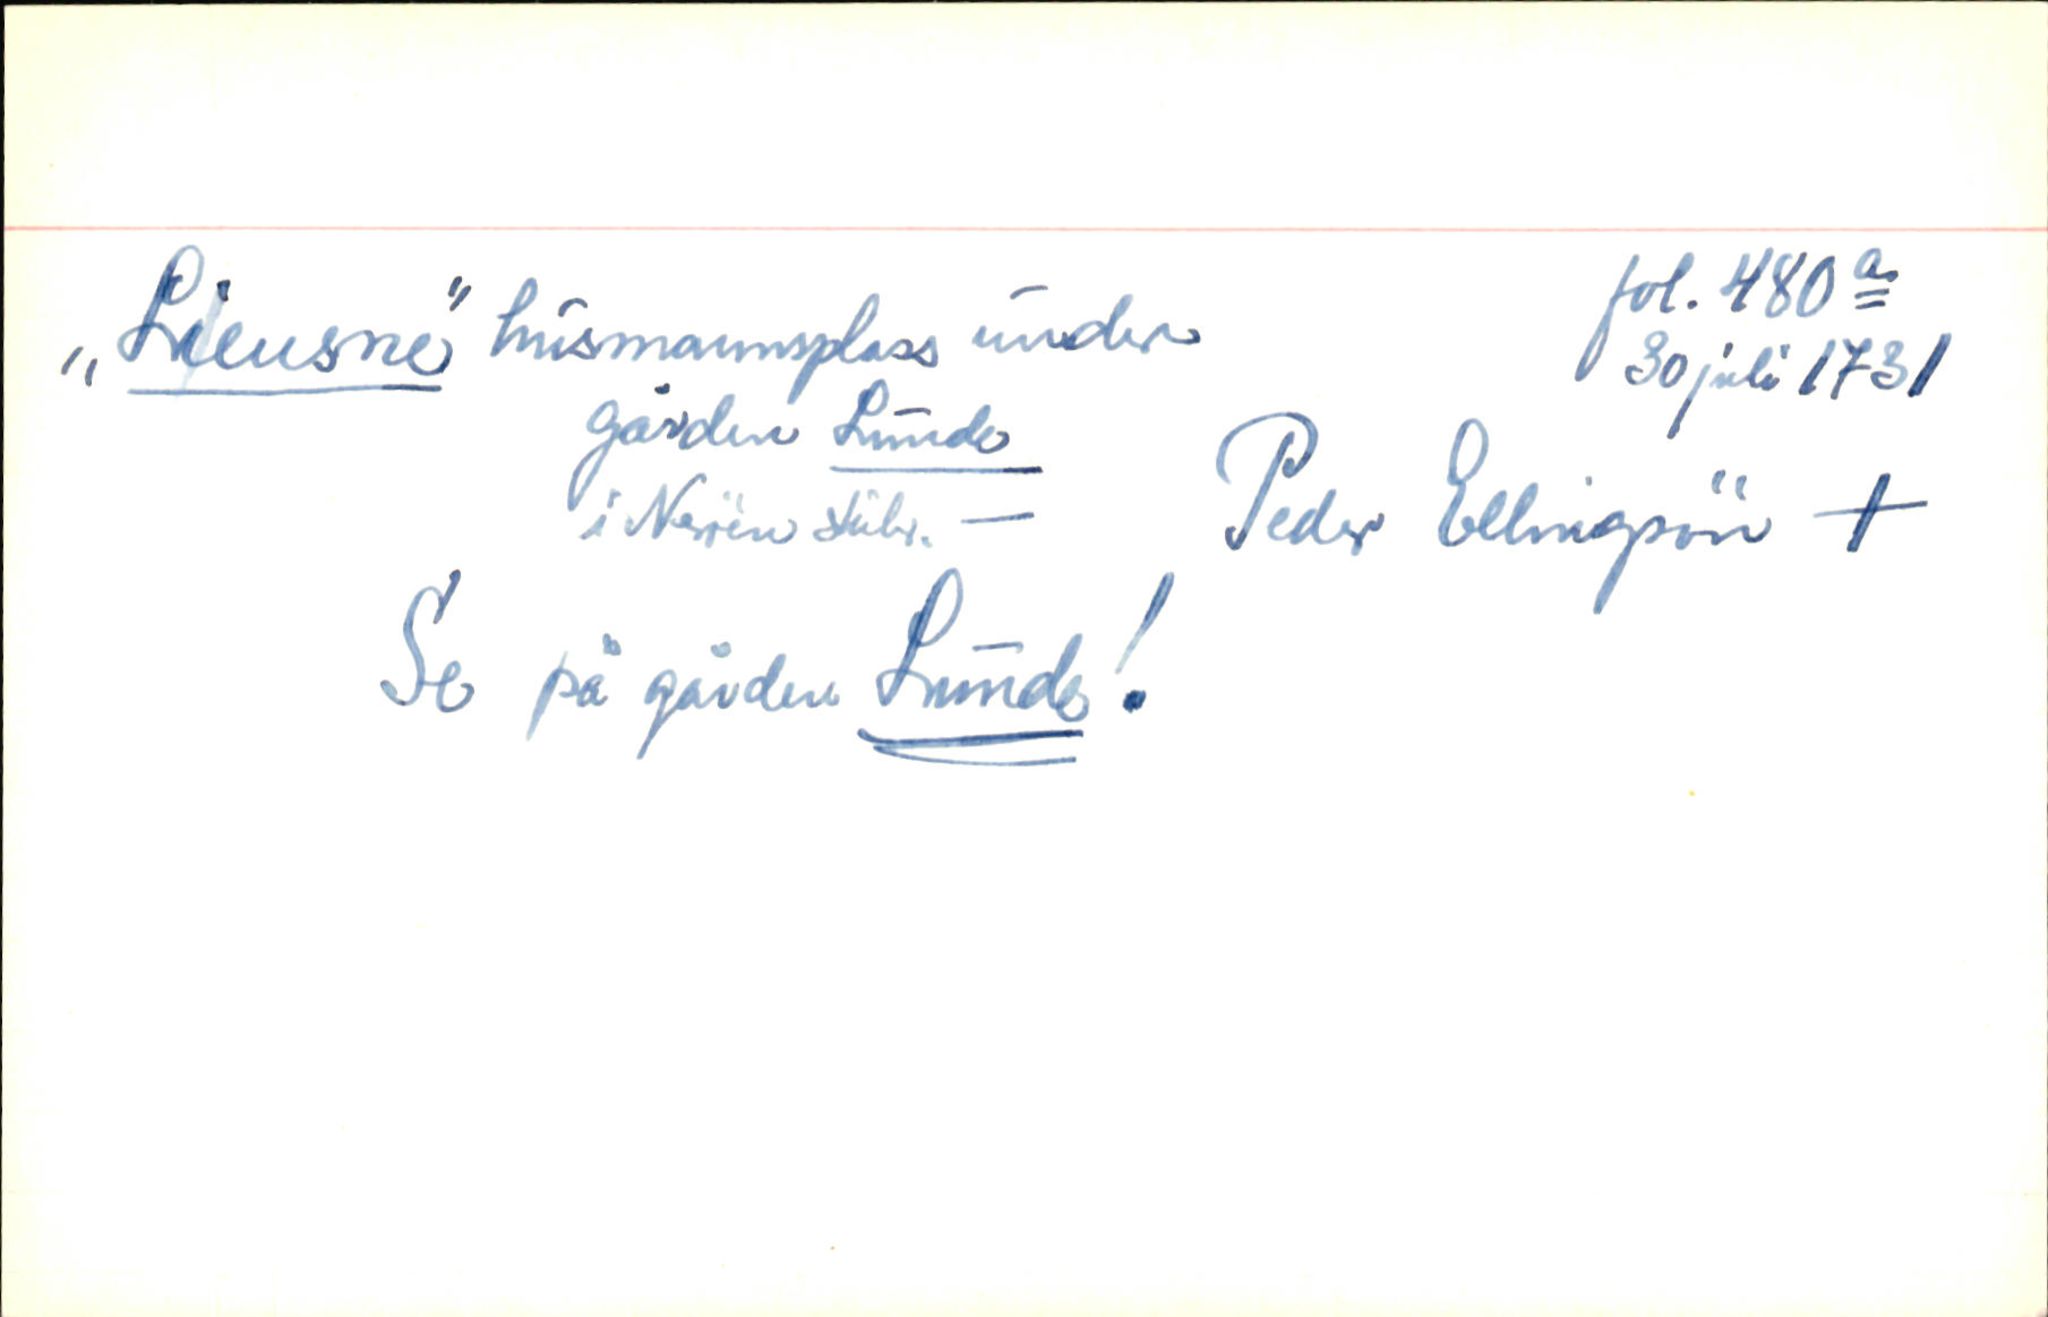 „Lieusne" husmannsplass under
fol. 480 a
30 juli 1731
gården Lunde
i Nerön skibr. —
Peder Ellingsön +
Se på gården Lunde!